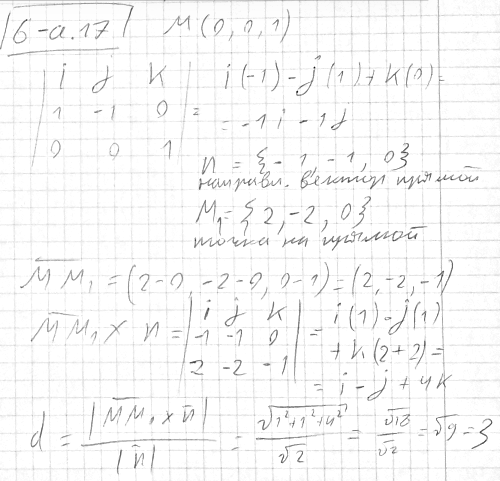 6-а.17 M (0, 0, 1)
| i j k |
| 1 -1 0 | = i(-1) - j(1) + k(0) =
| 0 0 1 | = -1i - 1j
n = {-1, -1, 0}
направл. вектор прямой
M₁ = {2, -2, 0}
точка на прямой
MM₁ = (2-0, -2-0, 0-1) = (2, -2, -1)
MM₁ × n = | i j k | = i(1) - j(1)
| -1 -1 0 | + k(2+2) =
| 2 -2 -1 | = i - j + 4k
d = |MM₁ × n| / |n| = √(1²+1²+4²) / √2 = √18 / √2 = √9 = 3